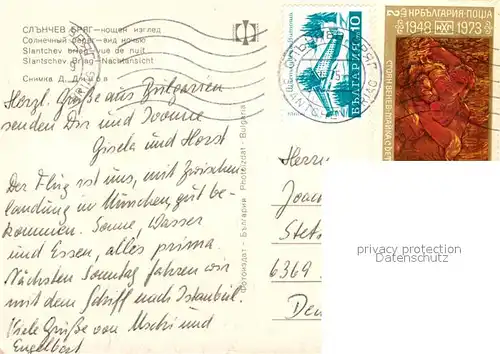 СЛЪНЧЕВ БРЯГ—нощен изглед
Солнечный берег—вид ночью
Slantchev briag—vue de nuit
Slantchev Briag—Nachtansicht
Снимка Д.
Herzl. Grüße aus Bulgarien
senden Dir und Ivonne
Gisela und Horst
Der Flug ist uns, mit Zwischen
landung in München, gut be-
kommen. Sonne, Wasser
und Essen, alles prima.
Nächsten Sonntag fahren wir
mit dem Schiff nach Istanbul.
Viele Grüße von Uschi und
Engelbert
Фотоиздат – България Photoizdat - Bulgaria
БЪЛГАРИЯ 10
2 НР БЪЛГАРИЯ·ПОЩА
1948 1973
Herrn
Joac
Stet
6369
Deu
privacy protection
oldthing.de